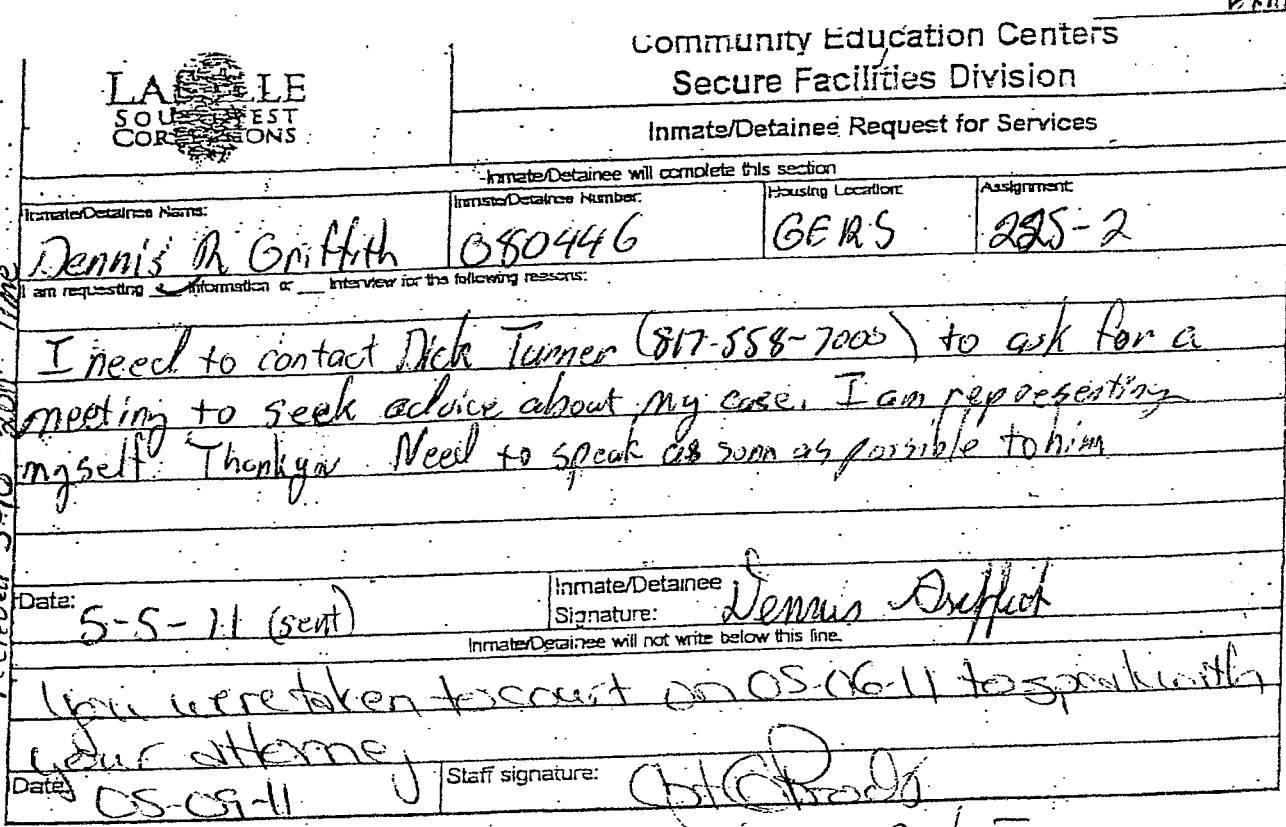 Community Education Centers
Secure Facilities Division
Inmate/Detainee Request for Services
LA LLE
SOU WEST
COR IONS
Inmate/Detainee will complete this section
Inmate/Detainee Name:
Dennis R Griffith
Inmate/Detainee Number:
080446
Housing Location:
GERS
Assignment:
225-2
I am requesting ✓ information or __ Interview for the following reasons:
I need to contact Dick Turner (817-558-7000) to ask for a
meeting to seek advice about my case. I am representing
myself. Thankyou Need to speak as soon as possible to him
Date:
5-5-11 (sent)
Inmate/Detainee
Signature:
Dennis Griffith
Inmate/Detainee will not write below this line.
you were taken to court on 05-06-11 to speak with
your attorney
Date:
05-09-11
Staff signature:
Recieved 5-10 2011